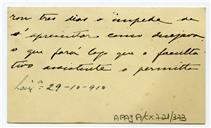 ron tres dias o impede de
s'apresentar como desejava
o que fará logo que o facultа-
tivo assistente o permitta
Lxª 29-10-910
APAJPI/CX721/373